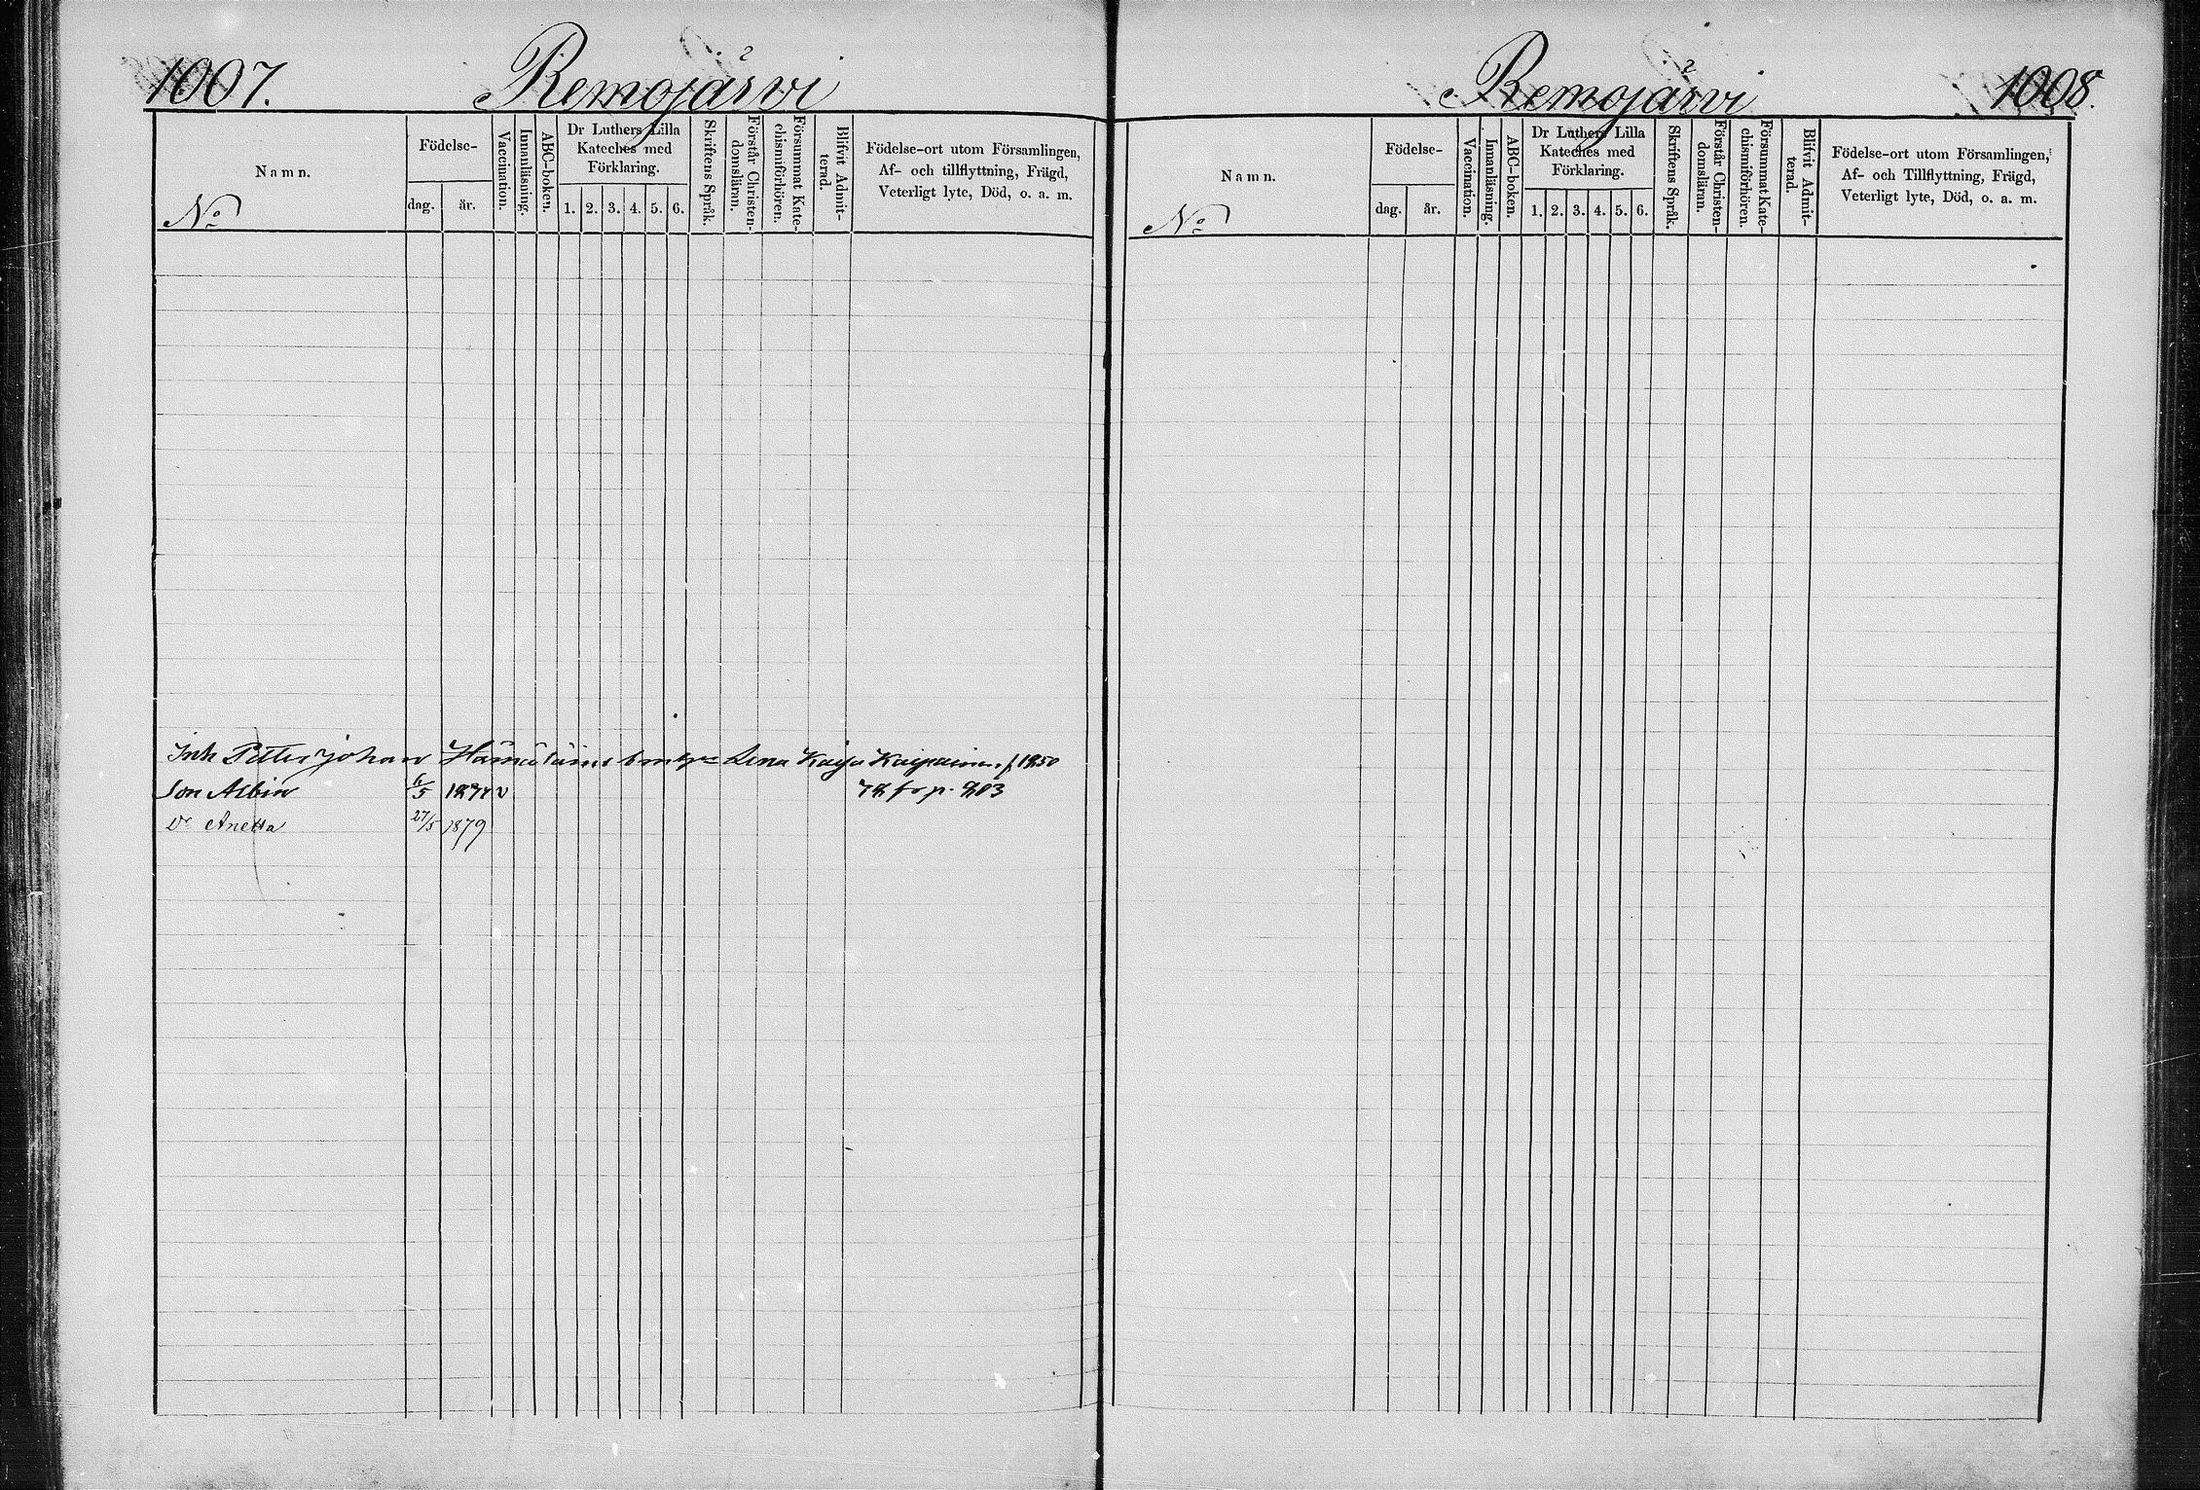 1007.
Remojärvi
Namn.
No
Födelse-
dag.
år.
Vaccination.
Innanläsning.
ABC-boken.
Dr Luthers Lilla
Kateches med
Förklaring.
1. 2. 3. 4. 5. 6.
Skriftens Språk.
Förstår Christen-
domsläran.
Försummat Kate-
chismiförhören.
Blifvit Admit-
terad.
Födelse-ort utom Församlingen,
Af- och tillflyttning, Frägd,
Veterligt lyte, Död, o. a. m.
Inh Petter Johan Lena Kaisa f 1850
Son Albin 6/5 1874 v 78 fr p. 803
Dr Anetta 27/5 1879
Remojärvi
1008.
Namn.
No
Födelse-
dag.
år.
Vaccination.
Innanläsning.
ABC-boken.
Dr Luthers Lilla
Kateches med
Förklaring.
1. 2. 3. 4. 5. 6.
Skriftens Språk.
Förstår Christen-
domsläran.
Försummat Kate-
chismiförhören.
Blifvit Admit-
terad.
Födelse-ort utom Församlingen,
Af- och Tillflyttning, Frägd,
Veterligt lyte, Död, o. a. m.